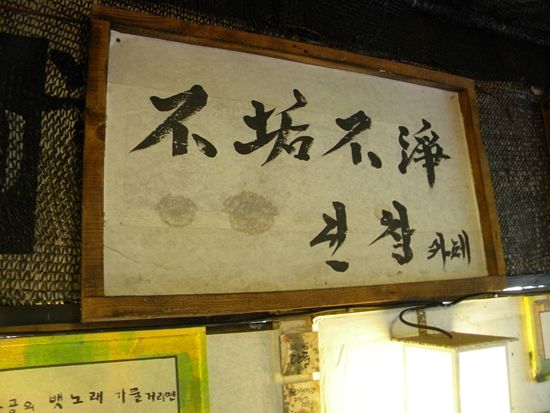 不垢不淨
찰 카페
공의 뱃노래 가물거리면